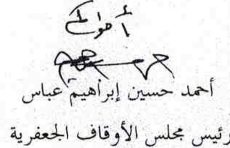 أحمد حسين إبراهيم عباس
رئيس مجلس الأوقاف الجعفرية